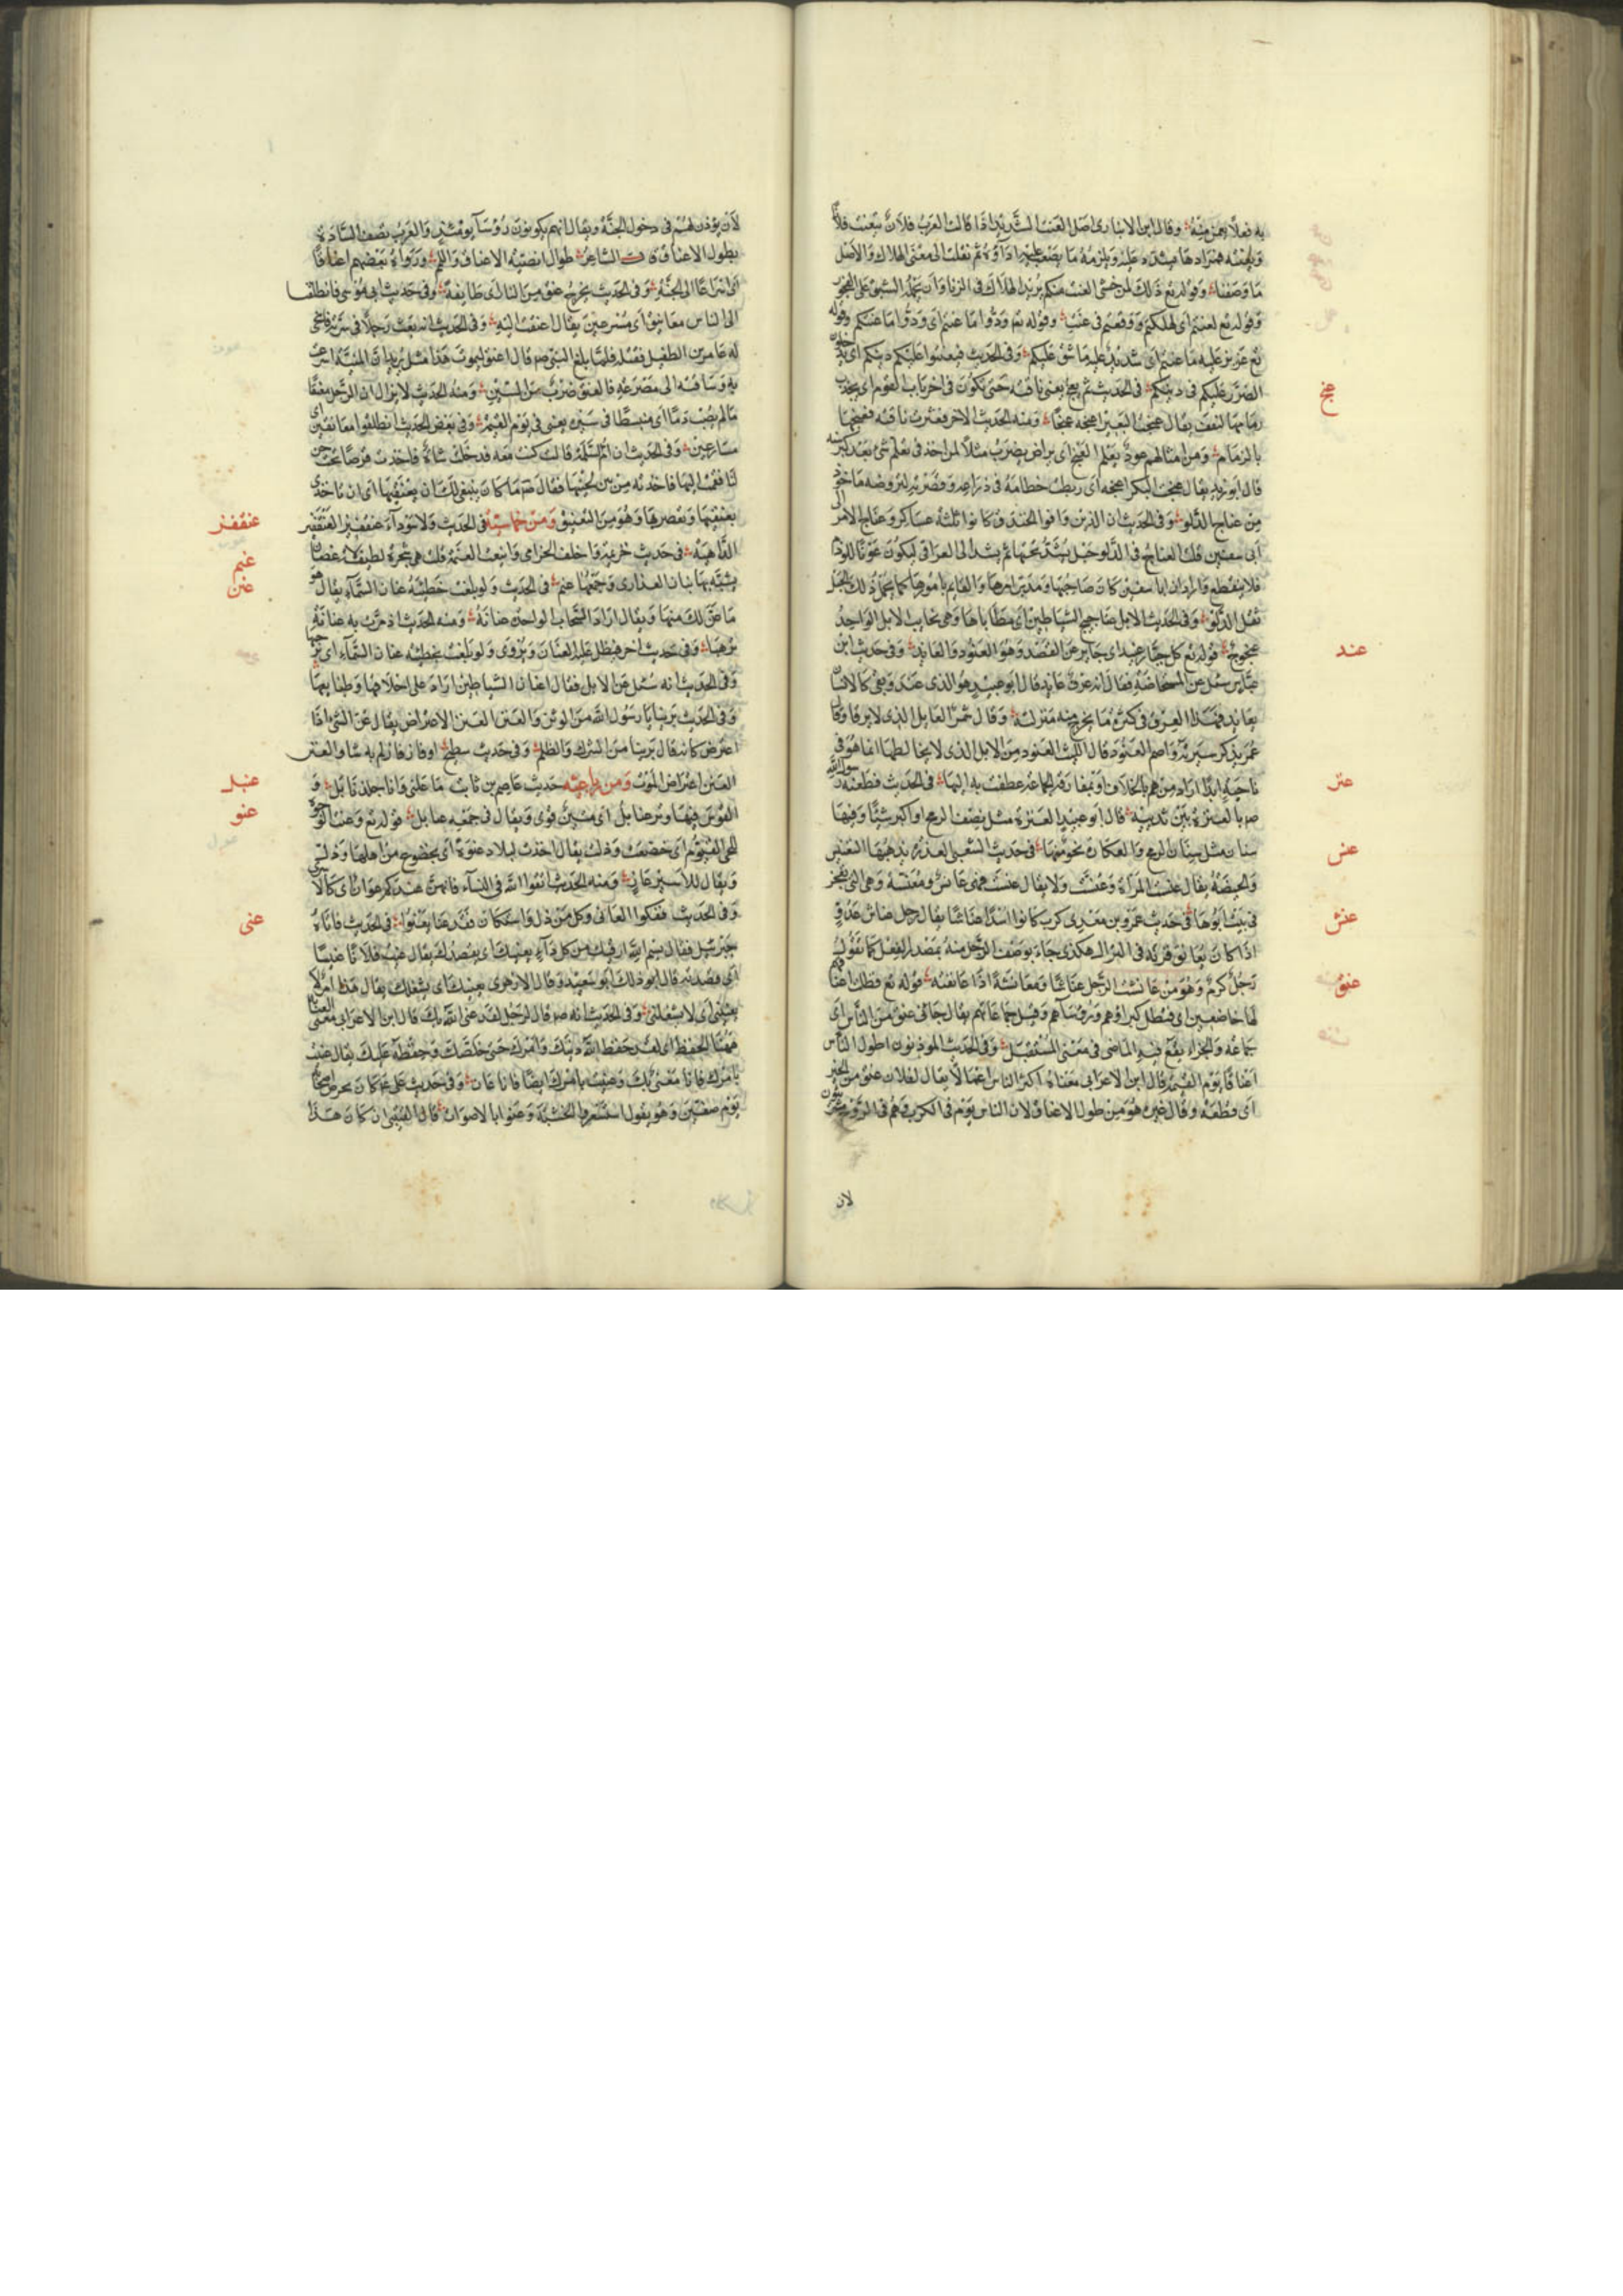 به فعلا يعجز منه وقال ابن الانبارى اصل العنت التشديد اذا قالت العرب فلان يتعنت فلانا
ويعنته فمرادها يشدد عليه ويلزمه ما يصعب عليه اداؤه ثم نقلت الى معنى الهلاك والاصل
ما وصفنا وقوله تع ذلك لمن خشى العنت منكم يريد الهلاك فى الزنا
وقوله تع لعنتم اى لهلكتم ووقعتم فى عنت وقوله تع ودوا ما عنتم اى ودوا ما عنتكم وقوله
تع عزيز عليه ما عنتم اى شديد عليه ما شق عليكم وفى الحديث فيعنتوا عليكم دينكم اى
الضرر عليكم فى دينكم فى الحديث ثم يعنج يعنى ناقته حتى تكون فى اخريات القوم اى يجذب
زمامها لتقف يقال عنجت البعير اعنجه عنجا ومنه الحديث الاخر فعثرت ناقته فعنجها
بالزمام ومن امثالهم عود يعلم العنج اى يراض يضرب مثلا لمن اخذ فى تعلم شئ بعد كبر سنه
قال ابو زيد يقال عنجت البكر اعنجه اى ربطت خطامه فى ذراعه وقصرته
من عناج الدلو وفى الحديث ان الذين وافوا الخندق كانوا ثلثة عساكر وعناج الامر الى
ابى سفين قلت العناج فى الدلو حبل يشد تحتها ثم يشد الى العراقى ليكون عونا للوذم
فلا ينقطع واراد ان ابا سفين كان صاحبها ومدبر امرها والقايم بامورها كما يحمل ذلك الحبل
ثقل الدلو وفى الحديث الابل عناجيج الشياطين اى مطاياها وهى نجايب الابل الواحد
عنجوج قوله تع كل جبار عنيد اى جاير عن القصد وهو العنود والعاند وفى حديث ابن
عباس سئل عن المستحاضة فقال انه عرق عاند قال ابو عبيد هو الذى عند وبغى كالانسان
يعاند فهذا العرق فى كثرة ما يخرج منه بمنزلته وقال شمر العاند الذى لا يرقا وقال
عمر يذكر سيرته واضم العنود قال الليث العنود من الابل الذى لا يخالطها انما هو فى
ناحية ابدا اراد من هم بالخلاف او بمفارقة الجماعة عطفت به اليها فى الحديث فطعنه رسول الله
ص بالعنزة بين ثدييه قال ابو عبيد العنزة مثل نصف الرمح او اكبر شيئا وفيها
سنان مثل سنان الرمح والعكازة نحو منها فى حديث الشعبى العذرة يذهبها التعنيس
والحيضة يقال عنست المراة وعنست ولا يقال عنست فهى عانس ومعنسة وهى التى تعجز
فى بيت ابويها فى حديث عمرو بن معدى كرب كانوا اسدا عناشا يقال رجل عناش عدو
اذا كان يعانق قرنه فى النزال هكذى جاء بوصف الرجل منه بمصدر الفعل كما تقول
رجل كرم وهو من عانشت الرجل عناشا ومعانشة اذا عانقته قوله تع فظلت اعناقهم
لها خاضعين اى فتظل كبراؤهم ورؤساؤهم وقيل جماعاتهم يقال جانى عنق من الناس اى
جماعة والجزاء يقع فيه الماضى فى معنى المستقبل وفى الحديث الموذنون اطول الناس
اعناقا يوم القيمة قال ابن الاعرابى معناه اكثر الناس اعمالا يقال لفلان عنق من الخير
اى قطعة وقال غيره هو من طول الاعناق لان الناس يومئذ فى الكرب وهم فى الروح
لان
عنج
عند
عنز
عنس
عنش
عنق
لان يؤذن لهم فى دخول الجنة ويقال انهم يكونون رؤسا يومئذ والعرب تصف السادة
بطول الاعناق قال الشاعر طوال انضية الاعناق واللمم ورواه بعضهم اعناقا
اى اسراعا الى الجنة وفى الحديث يخرج عنق من النار اى طايفة وفى حديث ابى موسى فانطلقنا
الى الناس معانيق اى مسرعين يقال اعنقت اليه وفى الحديث انه بعث رجلا فى سرية فانتحى
له عامر بن الطفيل فقتله فلما بلغ النبى ص قال اعنق ليموت هذا مثل يريد ان المنية اسرعت
به وساقته الى مصرعه فالعنق ضرب من السير ومنه الحديث لا يزال الرجل معنقا
ما لم يصب دما اى منبسطا فى سيره يعنى فى يوم القيمة وفى بعض الحديث انطلقوا معانقين اى
مسارعين وفى الحديث ان ام سلمة قالت كنت معه فدخلت شاة فاخذت قرصا تحت دن
لنا فقمت اليها فاخذته من بين لحييها فقال ص ما كان ينبغى لك ان تعنقيها اى ان تاخذى
بعنقها وتعصرها وهو من التعنيق ومن خماسيه فى الحديث ولا سوداء عنقفيز العنقفيز
الداهية فى حديث خزيمة واخلف الخزامى واينعت العنمة قلت هى شجرة لطيفة الاغصان
يشبه بها بنان العذارى وجمعها عنم فى الحديث ولو بلغت خطيئته عنان السماء يقال هو
ما عن لك منها ويقال اراد السحاب الواحدة عنانة ومنه الحديث اذ مرت به عنانة
ترهيا وفى حديث اخر فيظل عليه العنان ويروى ولو بلغت خطيئته عنان السماء اى نواحيها
وفى الحديث انه سئل عن الابل فقال اعنان الشياطين اراد على اخلاقها وطبايعها
وفى الحديث برينا يا رسول الله من الوثن والعنن العنن الاعتراض يقال عن الشئ اذا
اعترض كانه قال برينا من الشرك والظلم وفى حديث سطيح او فاز فازلم به شاو العنن
العنن اعتراض الموت ومن رباعيه حديث عاصم بن ثابت ما علتى وانا جلد نابل و
القوس فيها وتر عنابل اى متين قوى ويقال فى جمعه عنابل قوله تع وعنت الوجوه
للحى القيوم اى خضعت وذلت يقال اخذت البلاد عنوة اى بخضوع من اهلها وذل
ويقال للاسير عانى ومنه الحديث اتقوا الله فى النساء فانهن عندكم عوان اى كالاسرى
وفى الحديث ففكوا العانى وكل من ذل واستكان فقد عنا يعنوا فى الحديث فاتاه
جبرئيل فقال بسم الله ارقيك من كل داء يعنيك اى يقصدك يقال عنيت فلانا عنيا
اى قصدته قال ابو ذلك ابو سعيد وقال الازهرى يعنيك اى يشغلك يقال هذا امر لا
يعنينى اى لا يشغلنى وفى الحديث انه ص قال لرجل لقد عنى الله بك قال ابن الاعرابى معنى العناية
ههنا الحفظ اى لقد حفظ الله دينك وامرك حتى خلصك وحفظه عليك يقال عنيت
بامرك فانا معنى بك وعنيت بامرك ايضا فانا عان وفى حديث على ع كان يحرض اصحابه
يوم صفين وهو يقول استشعروا الخشية وعنوا بالاصوات قال القتيبى ان كان هذا
عنقفز
عنم
عنن
عنبل
عنو
عنى